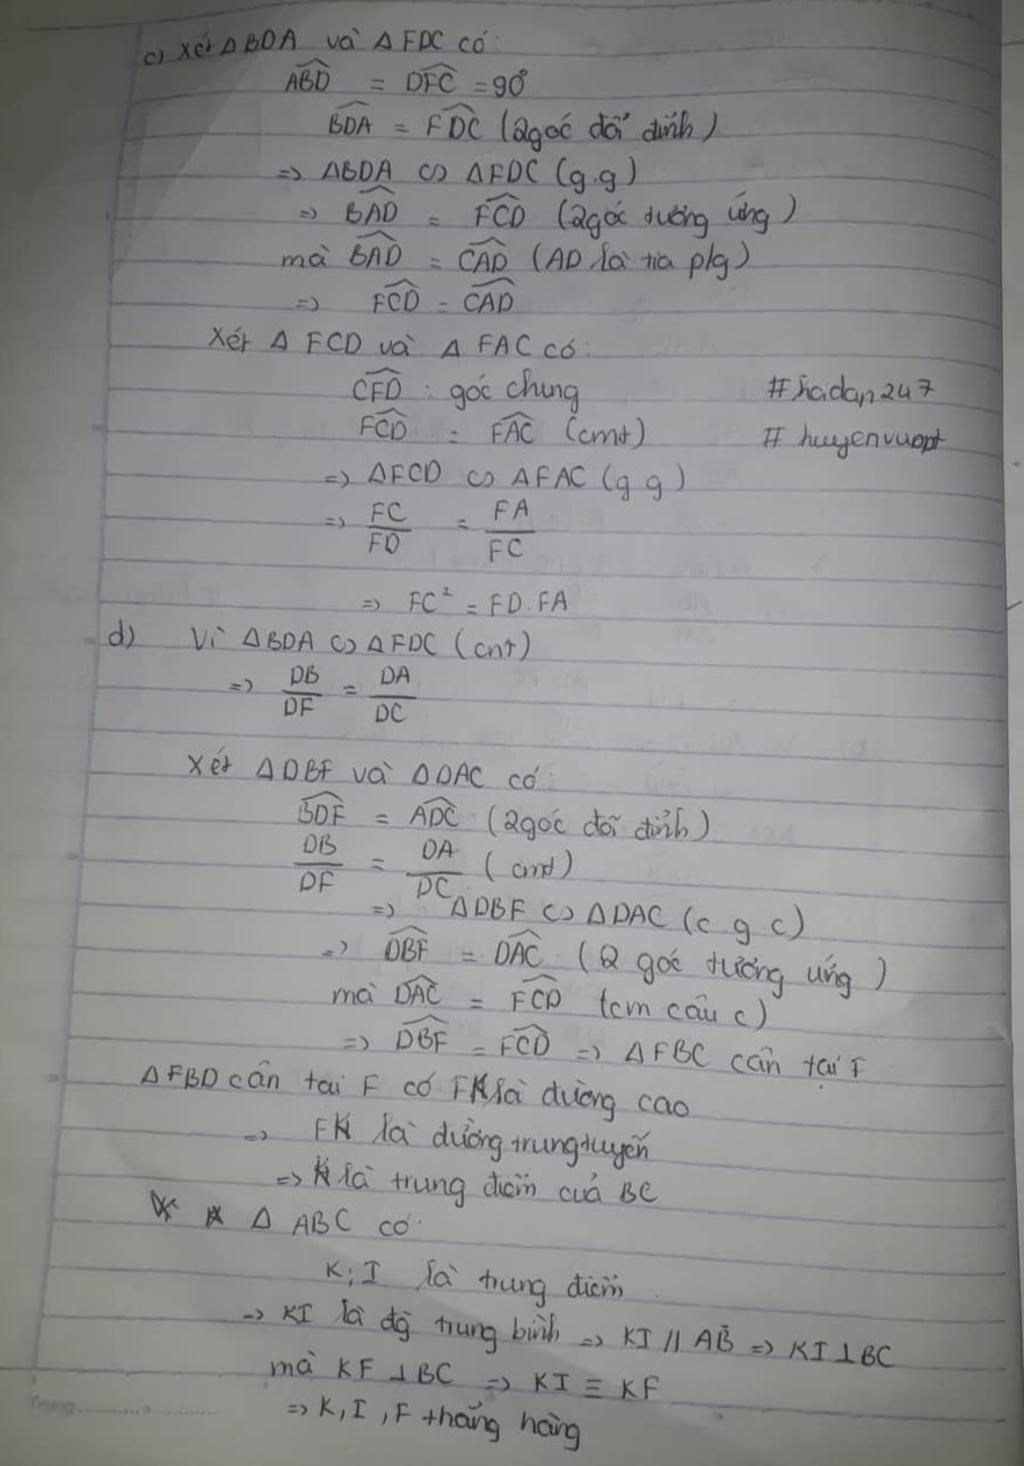 c) Xét ΔBDA và ΔFDC có:
\widehat{ABD} = \widehat{DFC} = 90°
\widehat{BDA} = \widehat{FDC} (2góc đối đỉnh)
=> ΔBDA ∽ ΔFDC (g.g)
=> \widehat{BAD} = \widehat{FCD} (2góc tương ứng)
mà \widehat{BAD} = \widehat{CAD} (AD là tia p/g)
=> \widehat{FCD} = \widehat{CAD}
Xét Δ FCD và Δ FAC có:
\widehat{CFD} : góc chung
\widehat{FCD} = \widehat{FAC} (cmt)
=> ΔFCD ∽ ΔFAC (g g)
=> FC/FD = FA/FC
=> FC² = FD.FA
d) Vì ΔBDA ∽ ΔFDC (cnt)
=> DB/DF = DA/DC
Xét ΔDBF và ΔDAC có:
\widehat{BDF} = \widehat{ADC} (2góc đối đỉnh)
DB/DF = DA/DC (cmt)
=> ΔDBF ∽ ΔDAC (c g c)
=> \widehat{DBF} = \widehat{DAC} (2 góc tương ứng)
mà \widehat{DAC} = \widehat{FCD} (cm câu c)
=> \widehat{DBF} = \widehat{FCD} => ΔFBC cân tại F
ΔFBD cân tại F có FK là đường cao
=> FK là đường trung tuyến
=> K là trung điểm của BC
Δ ABC có:
K; I là trung điểm
=> KI là đg trung bình => KI // AB => KI ⊥ BC
mà KF ⊥ BC => KI ≡ KF
=> K, I, F thẳng hàng